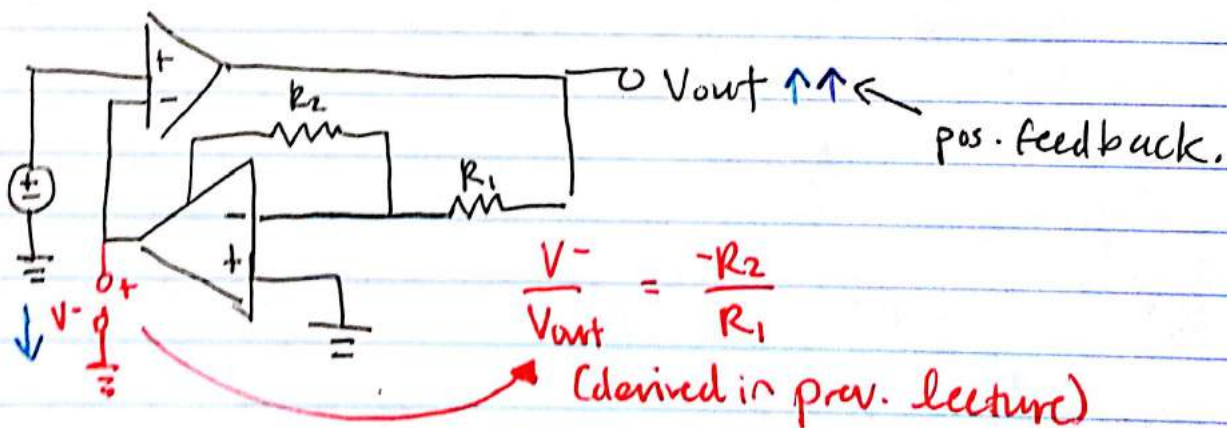 +
-
R₂
Vout ↑↑ ←
pos. feedback.
+
-
R₁
-
+
+
V⁻
↓
V⁻ / Vout = -R₂ / R₁
(derived in prev. lecture)